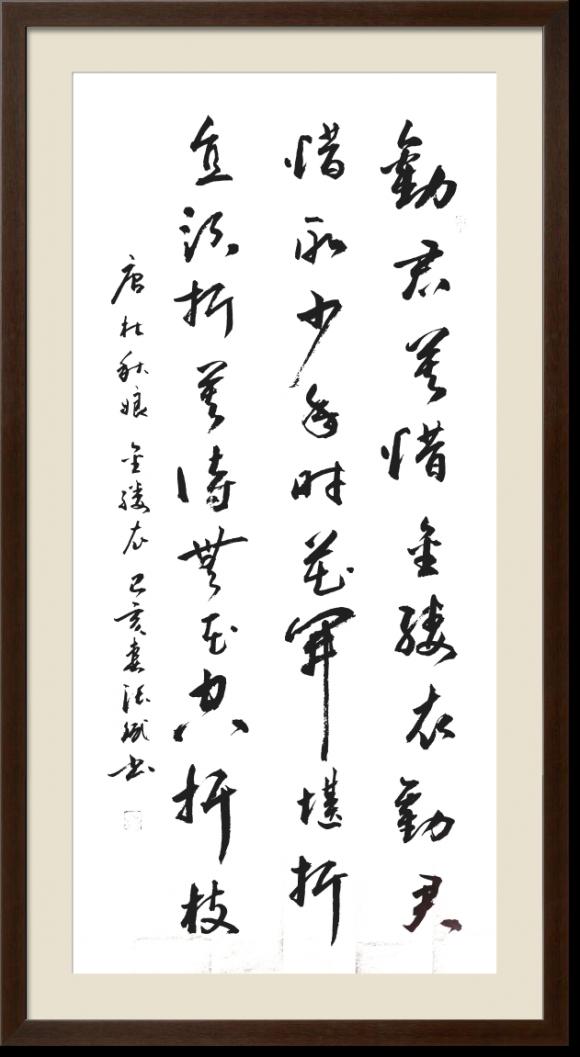 勸君莫惜金縷衣勸君
惜取少年時花開堪折
直須折莫待無花空折枝
唐杜秋娘 金縷衣 己亥春 书